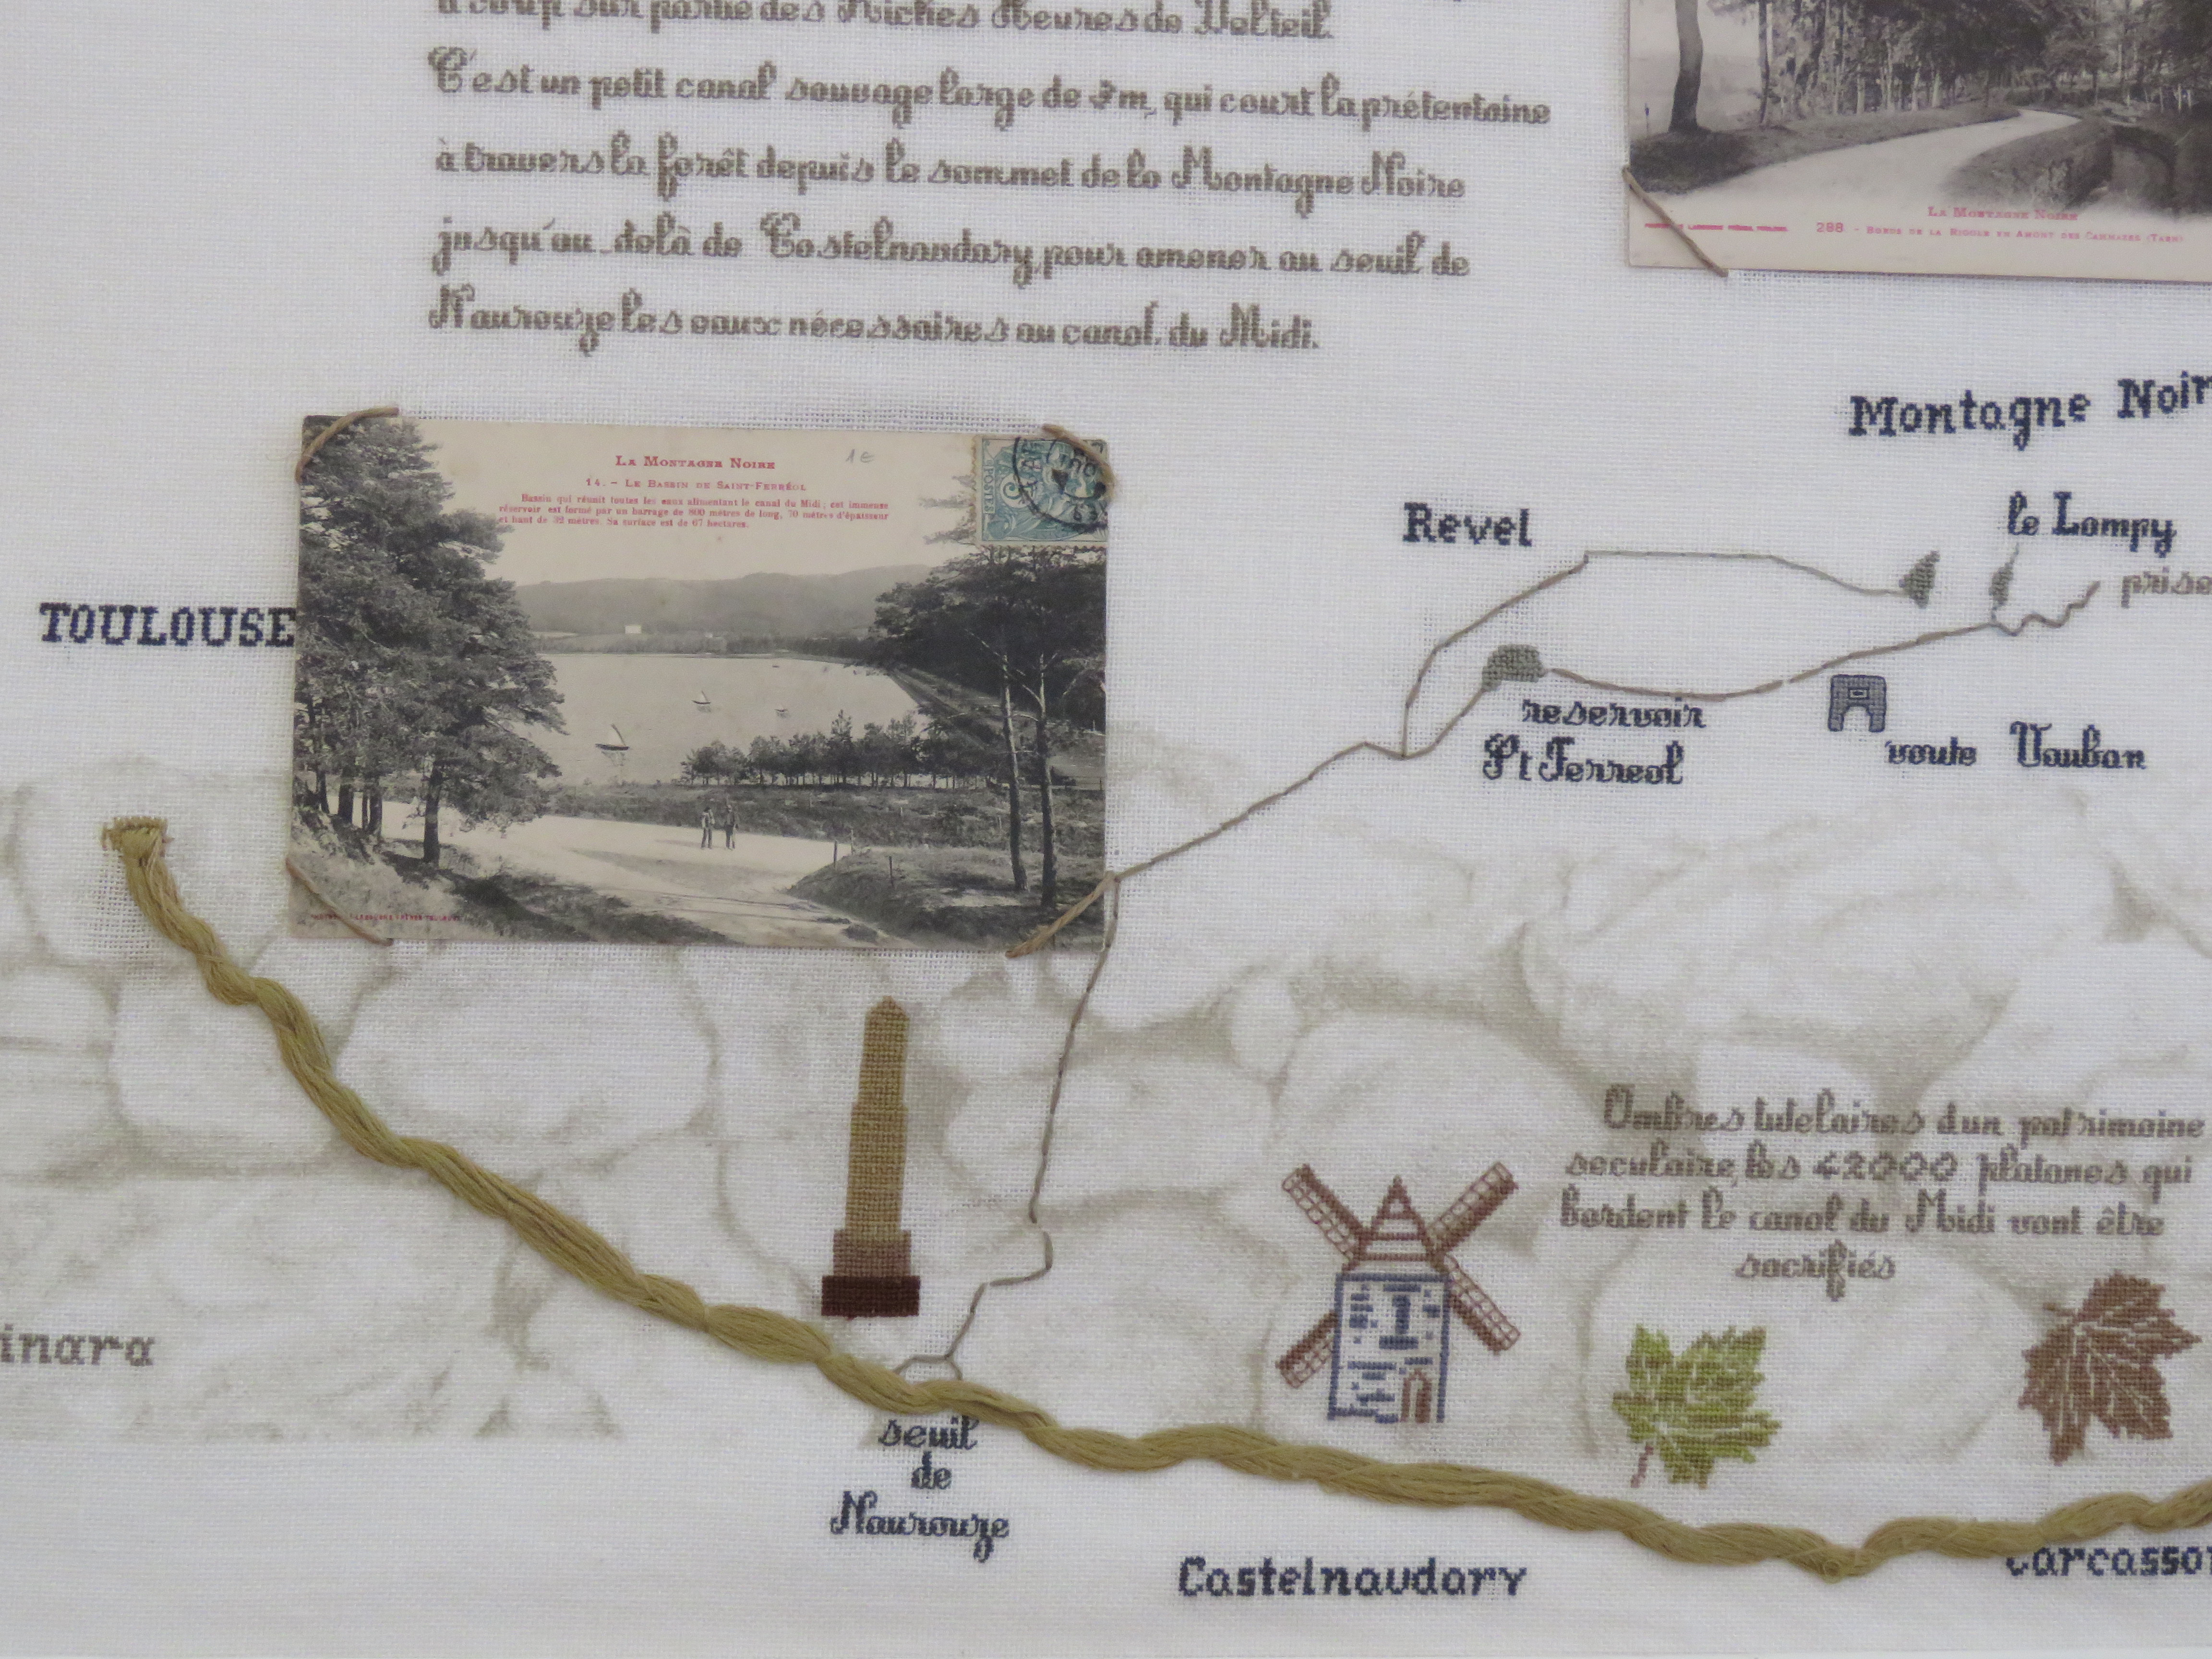 à coup sûr partie des Riches Heures de Delteil.
C'est un petit canal sauvage large de 3m, qui court la prétentaine
à travers la forêt depuis le sommet de la Montagne Noire
jusqu'au delà de Castelnaudary, pour amener au seuil de
Naurouze les eaux nécessaires au canal du Midi.
LA MONTAGNE NOIRE
288 - BORDS DE LA RIGOLE EN AMONT DES CAMMAZES (TARN)
Montagne Noir
LA MONTAGNE NOIRE
1€
14. - LE BASSIN DE SAINT-FERRÉOL
Bassin qui réunit toutes les eaux alimentant le canal du Midi; cet immense
réservoir est formé par un barrage de 800 mètres de long, 70 mètres d'épaisseur
et haut de 32 mètres. Sa surface est de 67 hectares.
POSTES
Revel
le Lampy
prise
TOULOUSE
reservoir
St Ferreol
voute Vauban
Ombres tutelaires d'un patrimoine
seculaire, les 42000 platanes qui
bordent le canal du Midi vont être
sacrifiés
inara
seuil
de
Naurouze
Castelnaudary
Carcasso